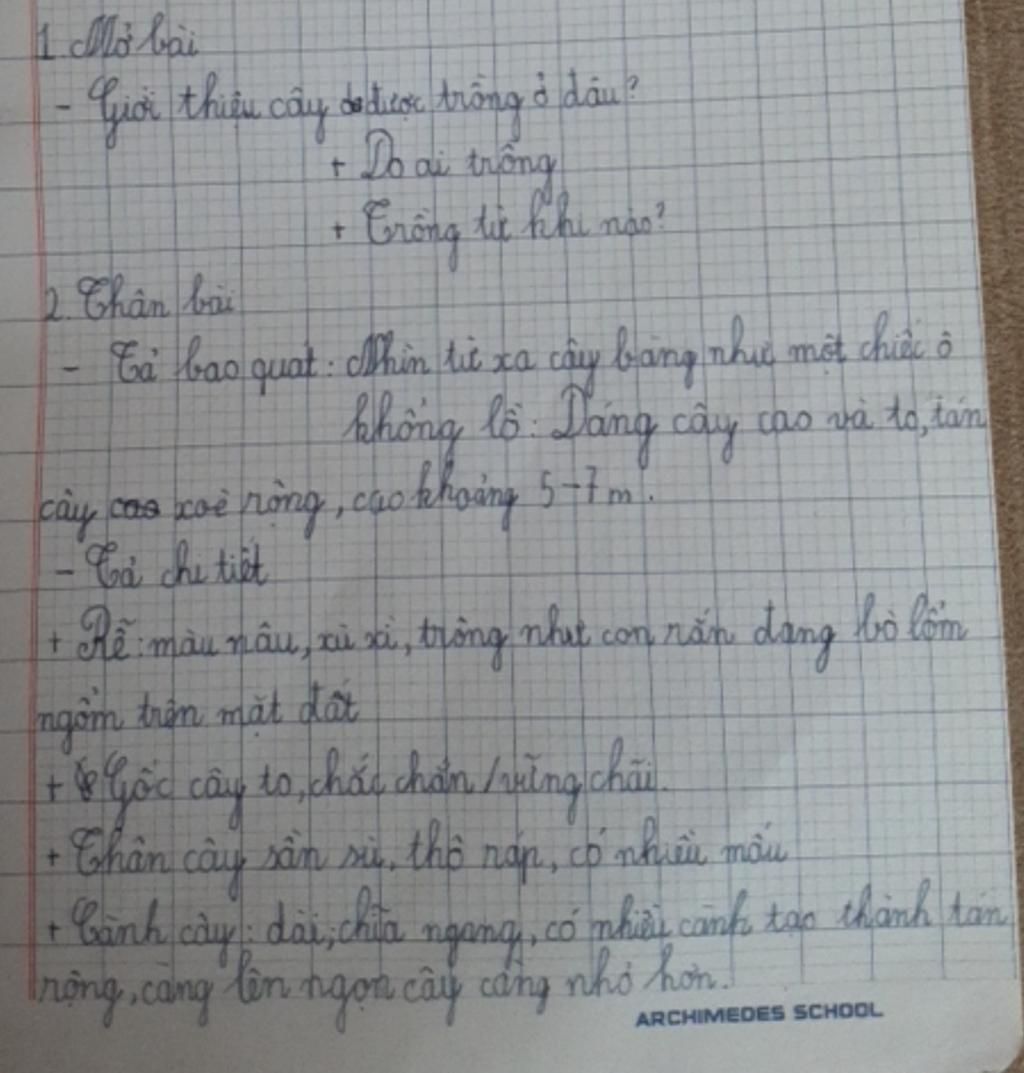 1. Mở bài
- Giới thiệu cây được trồng ở đâu?
+ Do ai trồng
+ Trồng từ khi nào?
2. Thân bài
- Tả bao quát: Nhìn từ xa cây bàng như một chiếc ô
khổng lồ: Dáng cây cao và to, tán
cây cao xoè rộng, cao khoảng 5-7m.
- Tả chi tiết
+ Rễ: màu nâu, xù xì, trông như con rắn đang bò lổm
ngổm trên mặt đất
+ Gốc cây to, chắc chắn / vững chãi.
+ Thân cây sần sùi, thô ráp, có nhiều mấu
+ Cành cây: dài, chĩa ngang, có nhiều cành tạo thành tán
rộng, càng lên ngọn cây càng nhỏ hơn.
ARCHIMEDES SCHOOL